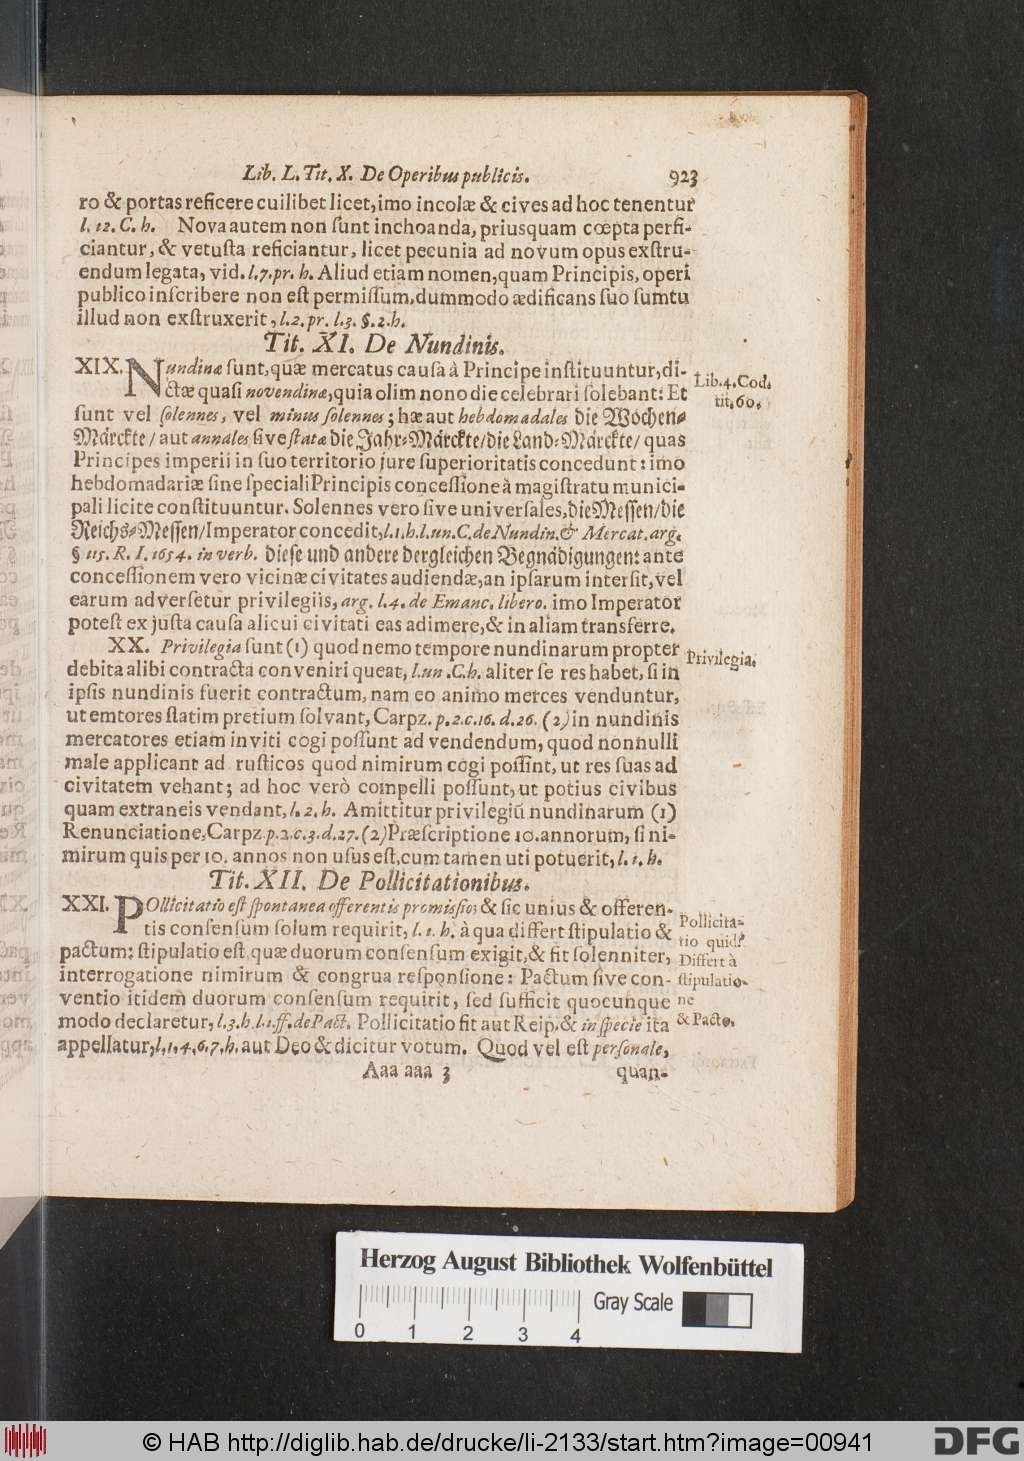 Lib. L. Tit. X. De Operibus publicis. 923
ro & portas reficere cuilibet licet, imo incolæ & cives ad hoc tenentur
l. 12. C. h. Nova autem non ſunt inchoanda, priusquam cœpta perfi-
ciantur, & vetuſta reficiantur, licet pecunia ad novum opus exſtru-
endum legata, vid. l. 7. pr. h. Aliud etiam nomen, quam Principis, operi
publico inſcribere non eſt permiſſum, dummodo ædificans ſuo ſumtu
illud non exſtruxerit, l. 2. pr. l. 3. §. 2. h.
Tit. XI. De Nundinis.
XIX. Nundinæ ſunt, quæ mercatus cauſa à Principe inſtituuntur, di-
ctæ quaſi novendinæ, quia olim nono die celebrari ſolebant: Et
ſunt vel ſolennes, vel minus ſolennes; hæ aut hebdomadales die Wochen-
Märckte / aut annales ſive ſtatæ die Jahr-Märckte / die Land-Märckte / quas
Principes imperii in ſuo territorio jure ſuperioritatis concedunt: imo
hebdomadariæ ſine ſpeciali Principis conceſſione à magiſtratu munici-
pali licite conſtituuntur. Solennes vero ſive univerſales, die Meſſen / die
Reichs-Meſſen / Imperator concedit, l. 1. h. l. un. C. de Nundin. & Mercat. arg.
§ 115. R. I. 1654. in verb. dieſe und andere dergleichen Begnädigungen: ante
conceſſionem vero vicinæ civitates audiendæ, an ipſarum interſit, vel
earum adverſetur privilegiis, arg. l. 4. de Emanc. libero. imo Imperator
poteſt ex juſta cauſa alicui civitati eas adimere, & in aliam transferre.
XX. Privilegia ſunt (1) quod nemo tempore nundinarum propter
debita alibi contracta conveniri queat, l. un. C. h. aliter ſe res habet, ſi in
ipſis nundinis fuerit contractum, nam eo animo merces venduntur,
ut emtores ſtatim pretium ſolvant, Carpz. p. 2. c. 16. d. 26. (2) in nundinis
mercatores etiam inviti cogi poſſunt ad vendendum, quod nonnulli
male applicant ad ruſticos quod nimirum cogi poſſint, ut res ſuas ad
civitatem vehant; ad hoc verò compelli poſſunt, ut potius civibus
quam extraneis vendant, l. 2. h. Amittitur privilegiū nundinarum (1)
Renunciatione, Carpz p. 2. c. 3. d. 27. (2) Præſcriptione 10. annorum, ſi ni-
mirum quis per 10. annos non uſus eſt, cum tamen uti potuerit, l. 1. h.
Tit. XII. De Pollicitationibus.
XXI. POllicitatio eſt ſpontanea offerentis promiſſio; & ſic unius & offeren-
tis conſenſum ſolum requirit, l. 1. h. à qua differt ſtipulatio &
pactum: ſtipulatio eſt, quæ duorum conſenſum exigit, & fit ſolenniter,
interrogatione nimirum & congrua reſponſione: Pactum ſive con-
ventio itidem duorum conſenſum requirit, ſed ſufficit quocunque
modo declaretur, l. 3. h. l. 1. ff. de Pact. Pollicitatio fit aut Reip. & in ſpecie ita
appellatur, l, 1, 4, 6, 7, h. aut Deo & dicitur votum. Quod vel eſt perſonale,
Aaa aaa 3 quan-
Lib. 4. Cod.
tit. 60.
Privilegia.
Pollicita-
tio quid?
Differt à
ſtipulatio-
ne
& Pacto.
Herzog August Bibliothek Wolfenbüttel
0 1 2 3 4 Gray Scale
© HAB http://diglib.hab.de/drucke/li-2133/start.htm?image=00941 DFG